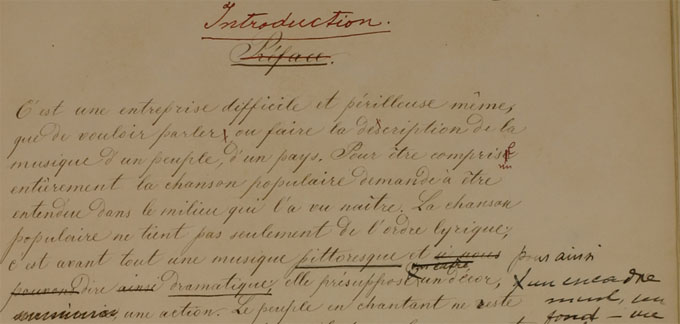 Introduction.
Préface.
C'est une entreprise difficile et périlleuse même,
que de vouloir parler ou faire la description de la
musique d'un peuple, d'un pays. Pour être comprise
entièrement la chanson populaire demande à être
entendue dans le milieu qui l'a vu naître. La chanson
populaire ne tient pas seulement de l'ordre lyrique,
c'est avant tout une musique pittoresque et si nous pour ainsi
pouvons dire ainsi dramatique, elle présuppose un décor, un encadre
une action. Le peuple en chantant ne reste ment, un
fond – une